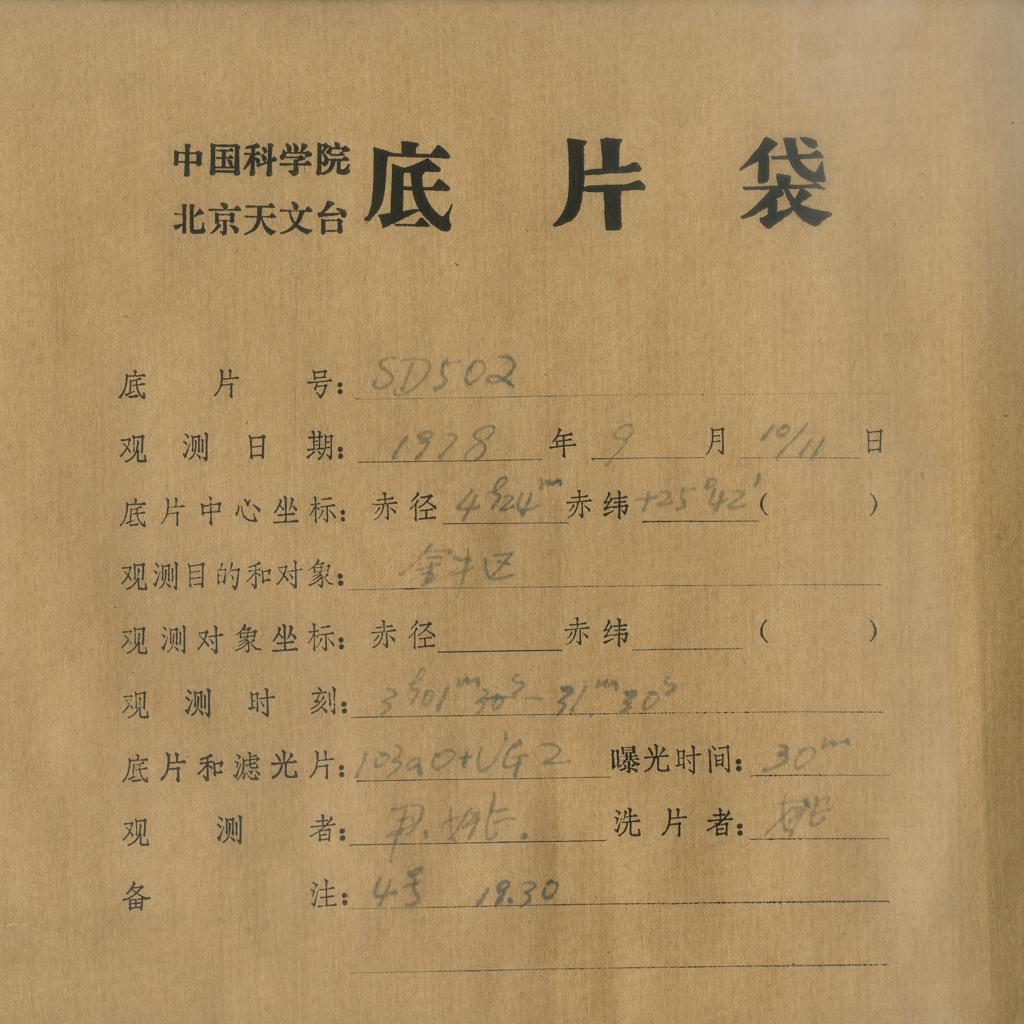 中国科学院
北京天文台 底片袋
底片号: SD502
观测日期: 1978 年 9 月 10/11 日
底片中心坐标: 赤径 4h24m 赤纬 +25°42′ ( )
观测目的和对象: 金牛区
观测对象坐标: 赤径 赤纬 ( )
观测时刻: 3h01m30s-31m30s
底片和滤光片: 103aO+UG2 曝光时间: 30m
观测者: 姚. 洗片者: 姚
备注: 4号 19.30